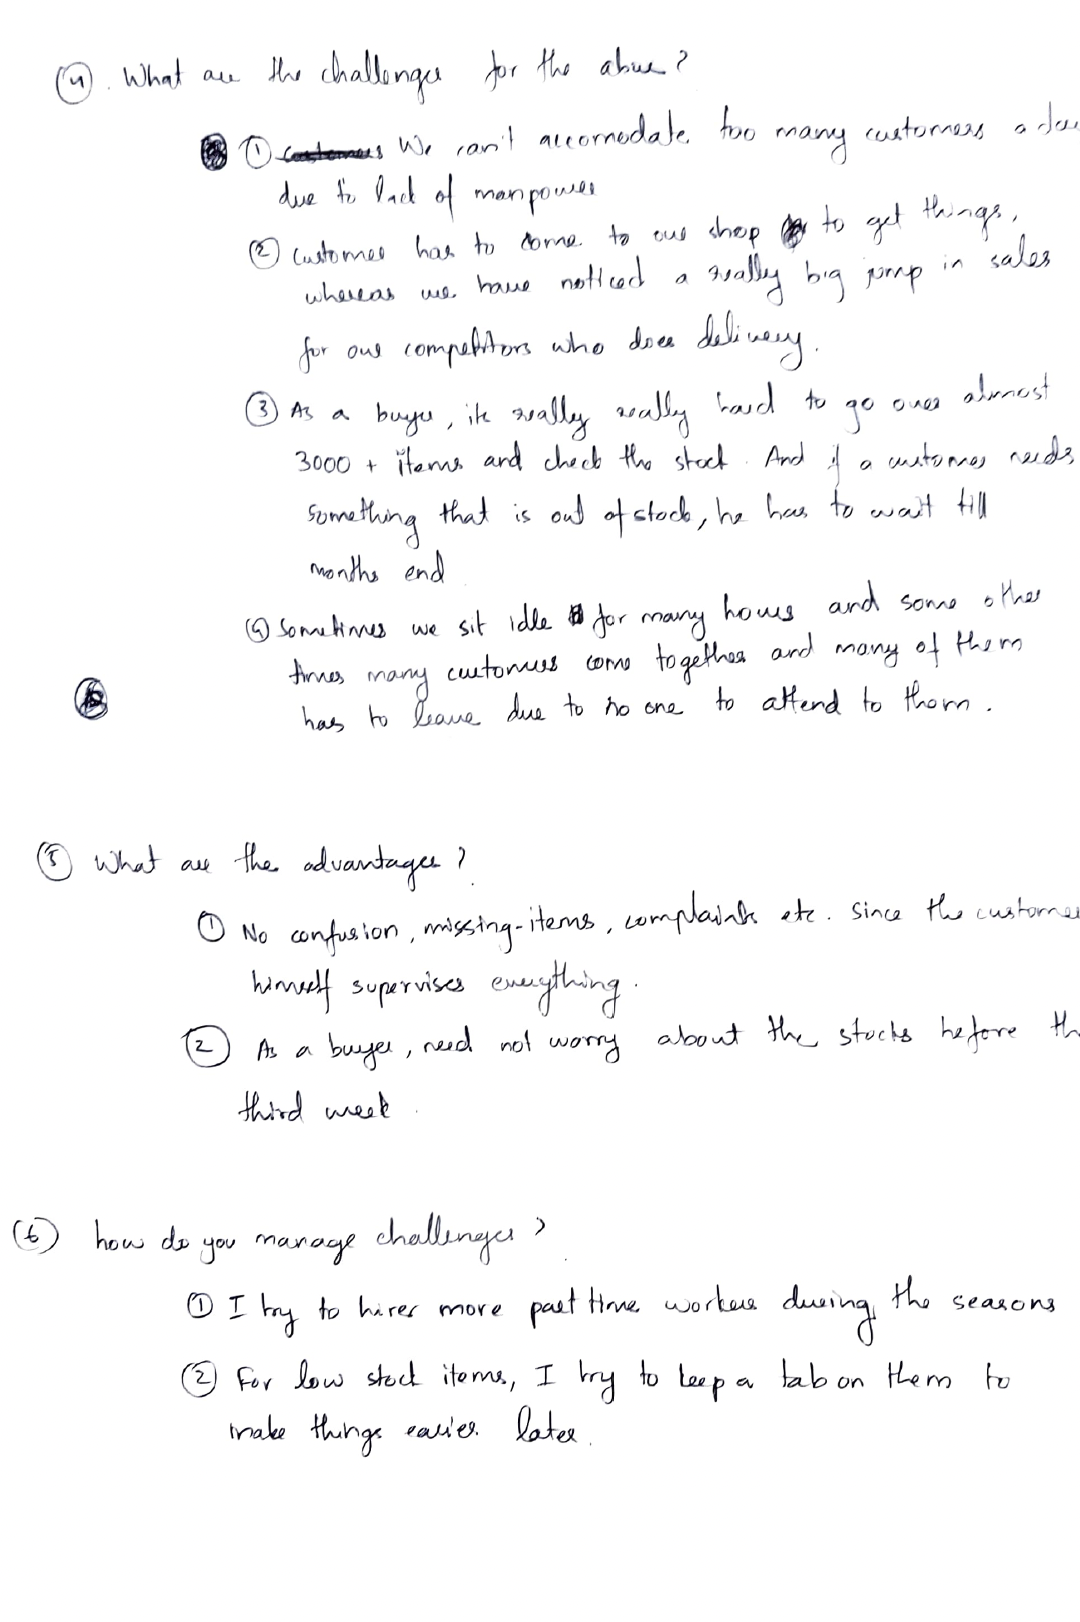 (4). What are the challenges for the above?
(1) We can't accomodate too many customers a day
due to lack of manpower
(2) Customer has to come to our shop to get things,
whereas we have noticed a really big jump in sales
for our competitors who does delivery.
(3) As a buyer, its really really hard to go over almost
3000 + items and check the stock. And if a customer needs
something that is out of stock, he has to wait till
months end
(4) Sometimes we sit idle for many hours and some other
times many customers come together and many of them
has to leave due to no one to attend to them.
(5) What are the advantages?
(1) No confusion, missing-items, complaints etc. Since the customer
himself supervises everything.
(2) As a buyer, need not worry about the stocks before the
third week.
(6) how do you manage challenges?
(1) I try to hires more part time workers during the seasons
(2) For low stock items, I try to keep a tab on them to
make things easier later.